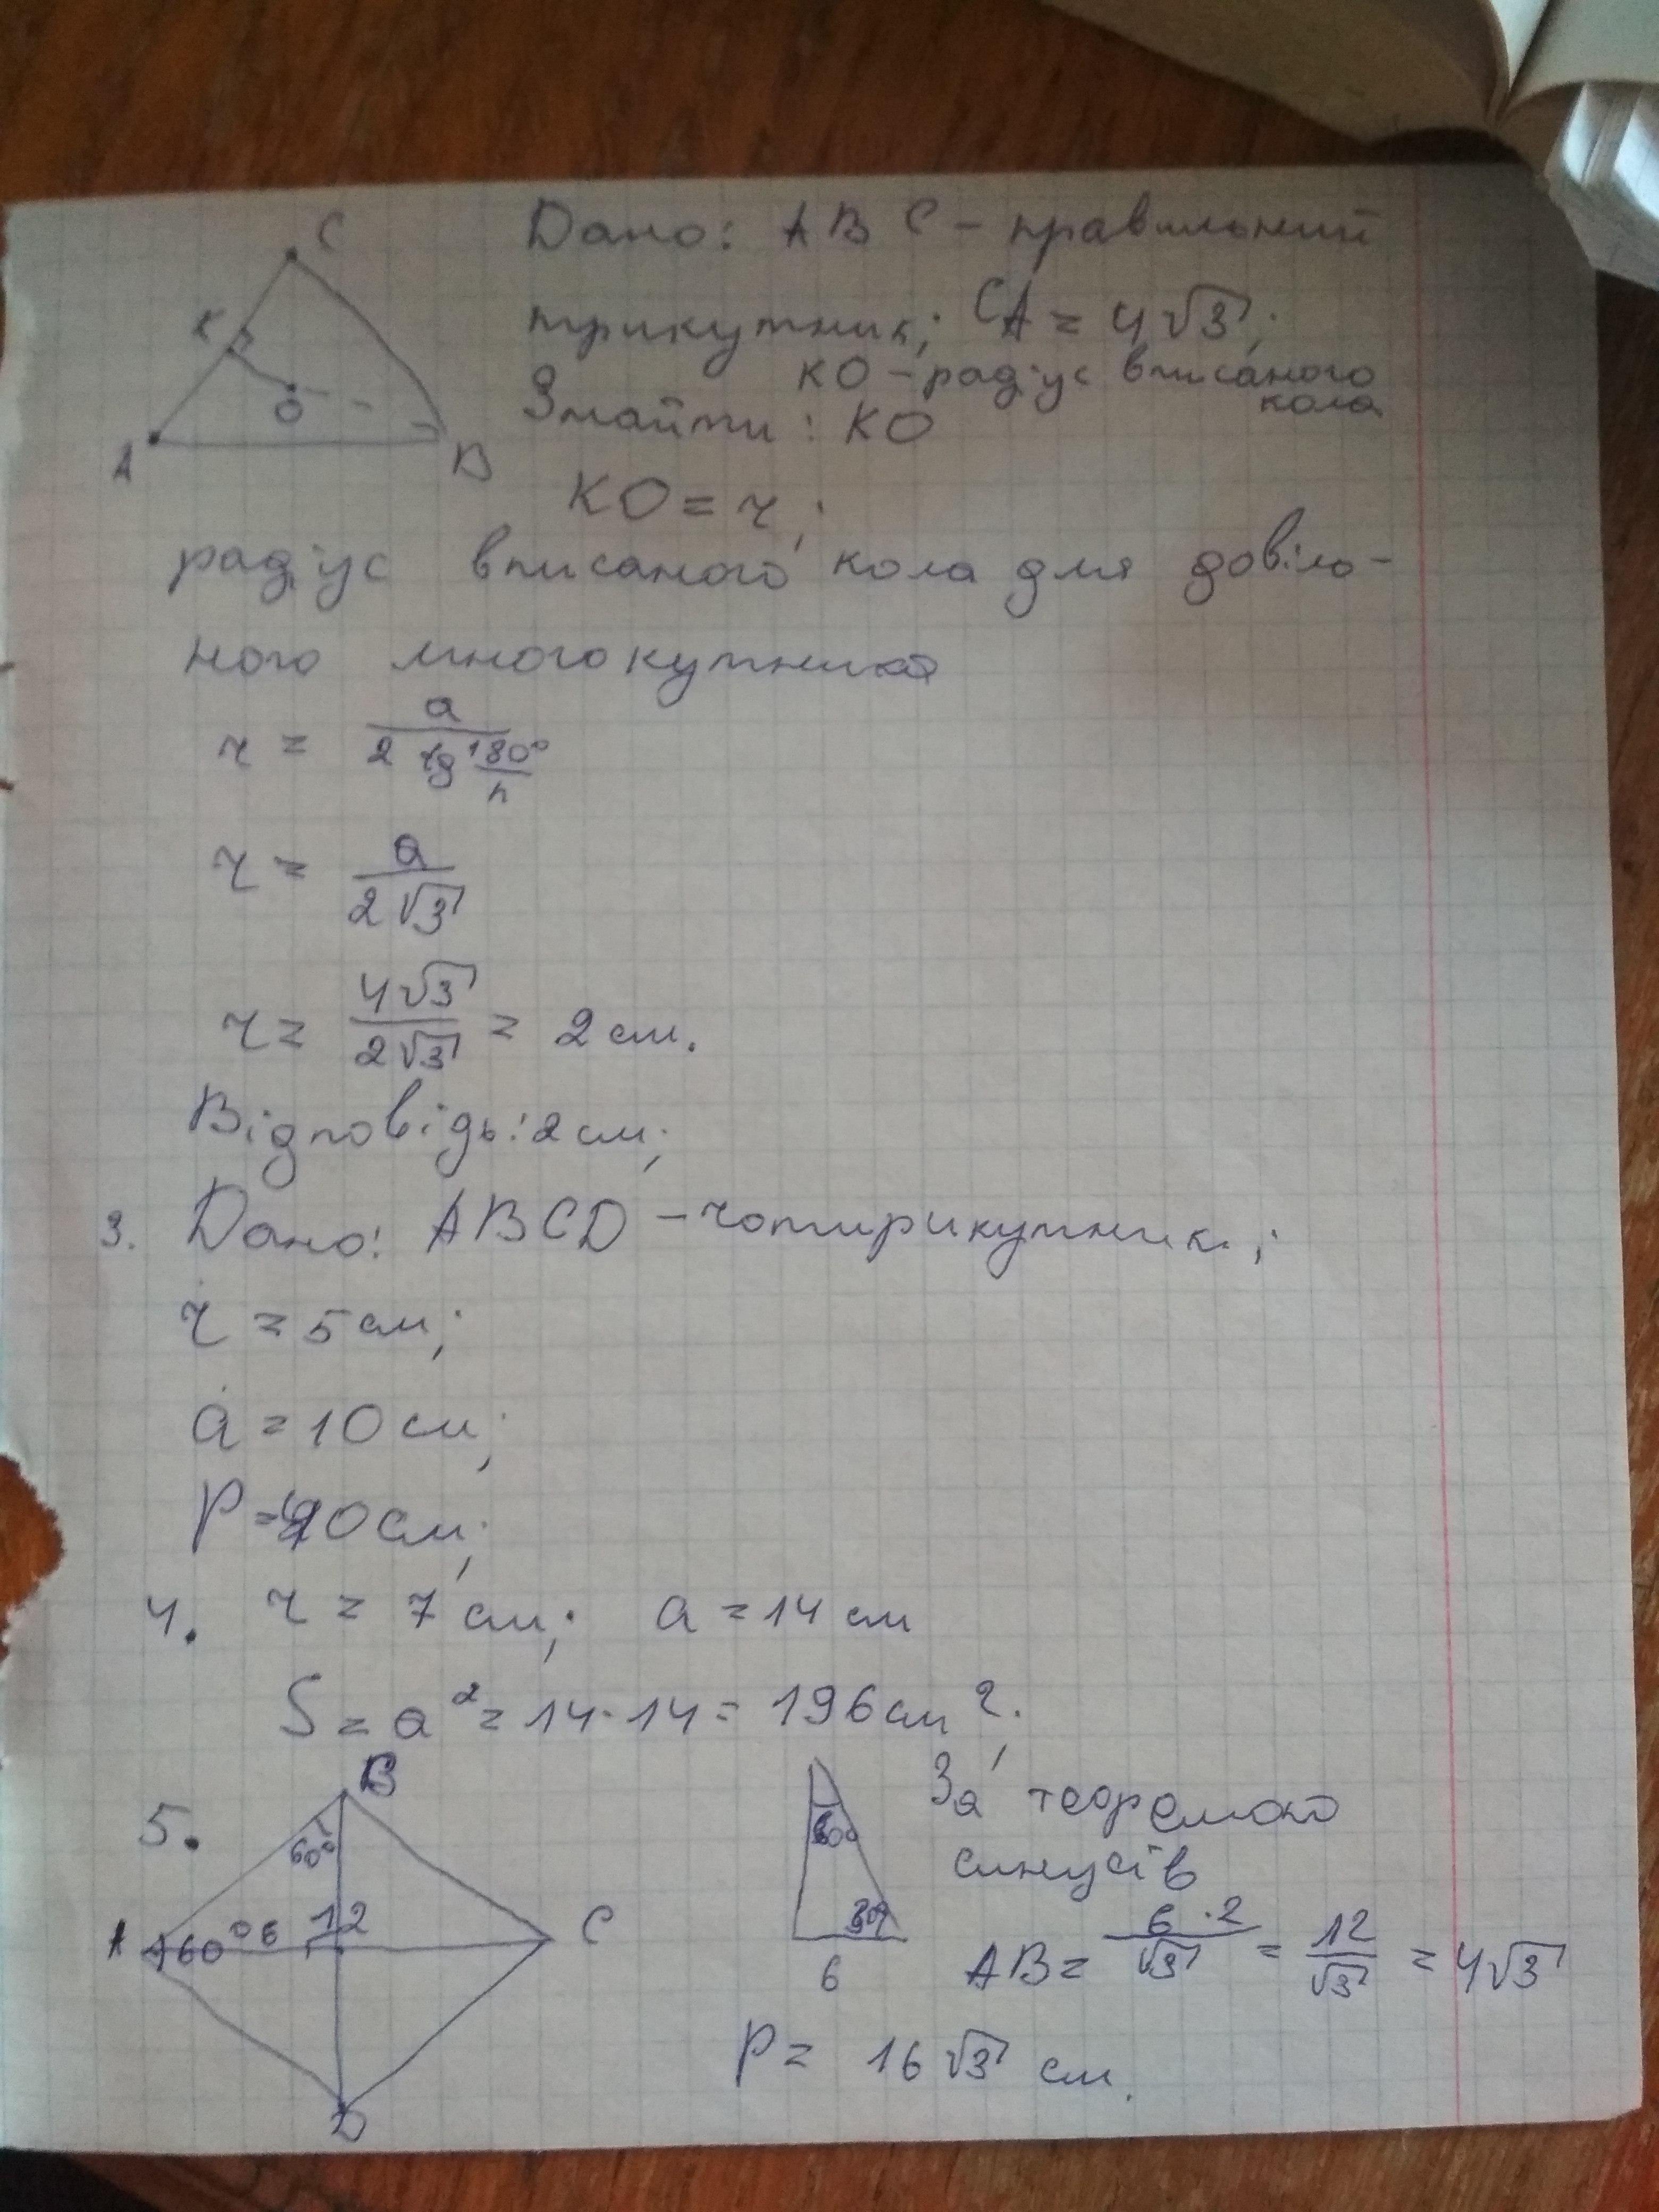 C
Дано: ABC - правильний
K
трикутник; CA = 4√3;
KO - радіус вписаного
кола
O
Знайти: KO
A
B
KO = r;
радіус вписаного кола для довіль-
ного многокутника
r = a / (2 tg 180°/n)
r = a / (2√3)
r = 4√3 / (2√3) = 2 см.
Відповідь: 2 см;
3. Дано: ABCD - чотирикутник;
r = 5 см;
a = 10 см;
P = 40 см;
4. r = 7 см; a = 14 см
S = a² = 14·14 = 196 см²;
5.
B
60°
A 60° 6 12 C
D
60°
30°
6
За теоремою
синусів
AB = 6·2 / √3 = 12 / √3 = 4√3
P = 16√3 см.